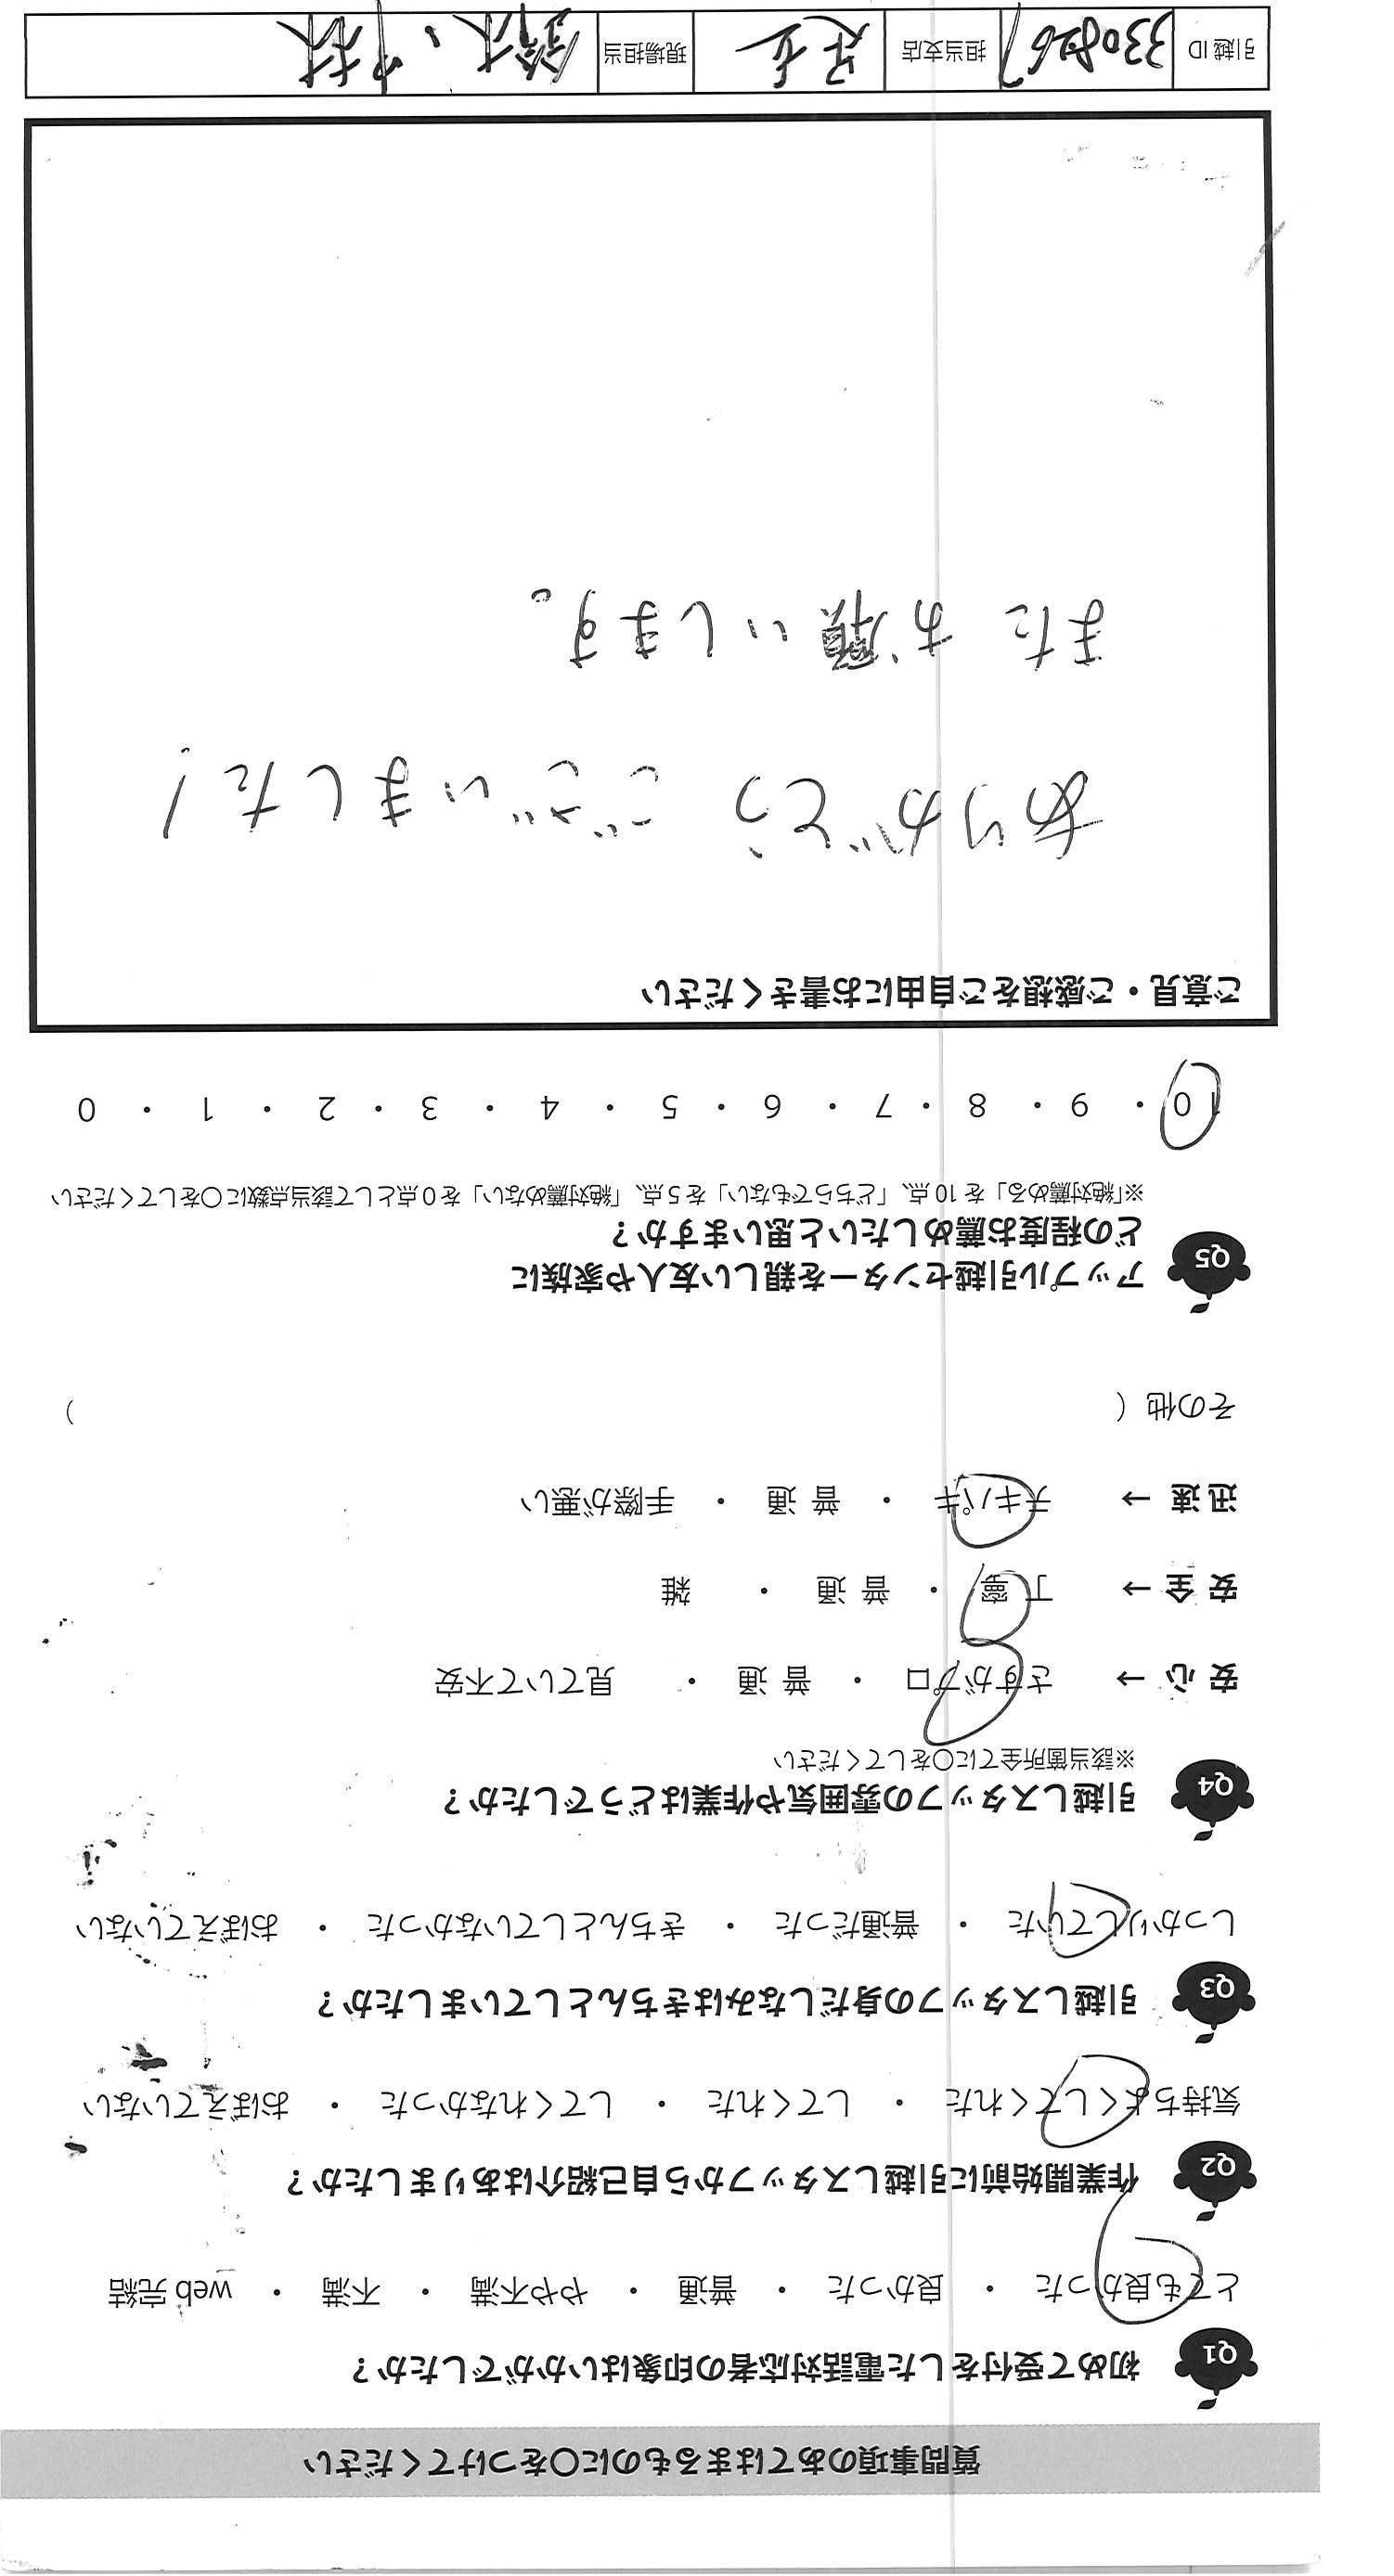 質問事項のあてはまるものに〇をつけてください
Q1 初めて受付をした電話対応者の印象はいかがでしたか？
とても良かった ・ 良かった ・ 普通 ・ やや不満 ・ 不満 ・ web 完結
Q2 作業開始前に引越しスタッフから自己紹介はありましたか？
気持ちよくしてくれた ・ してくれた ・ してくれなかった ・ おぼえていない
Q3 引越しスタッフの身だしなみはきちんとしていましたか？
しっかりしていた ・ 普通だった ・ きちんとしていなかった ・ おぼえていない
Q4 引越しスタッフの雰囲気や作業はどうでしたか？
※該当箇所全てに〇をしてください
安心 → さすがプロ ・ 普通 ・ 見ていて不安
安全 → 丁寧 ・ 普通 ・ 雑
迅速 → テキパキ ・ 普通 ・ 手際が悪い
その他（ ）
Q5 アップル引越センターを親しい友人や家族に
どの程度お薦めしたいと思いますか？
※「絶対薦める」を 10 点、「どちらでもない」を 5 点、「絶対薦めない」を 0 点として該当点数に〇をしてください
10 ・ 9 ・ 8 ・ 7 ・ 6 ・ 5 ・ 4 ・ 3 ・ 2 ・ 1 ・ 0
ご意見・ご感想をご自由にお書きください
ありがとうございました！
またお願いします。
引越 ID 3308267 担当支店 現場担当 鈴木、中林